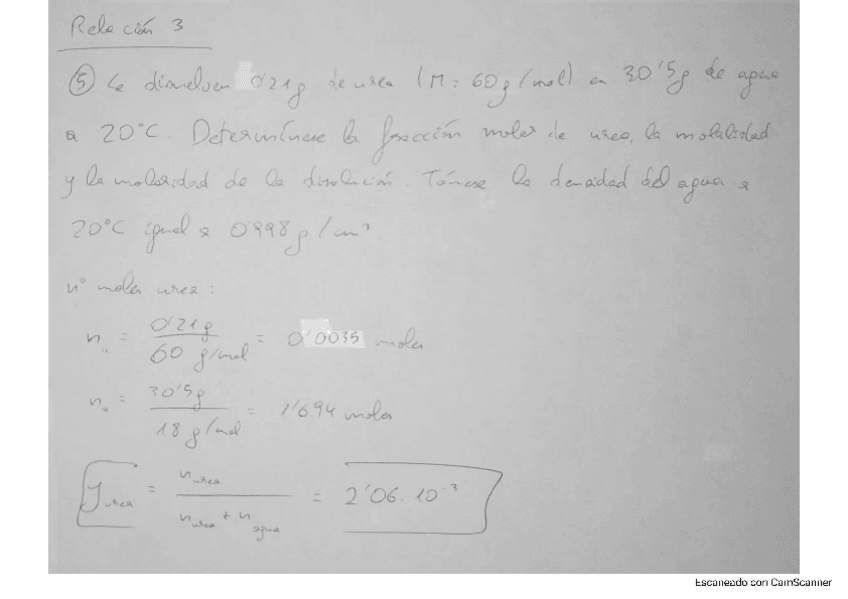 Relación 3
⑤ Se disuelven 0'21g de urea (M = 60g/mol) en 30'5g de agua
a 20°C. Determínese la fracción molar de urea, la molalidad
y la molaridad de la disolución. Tómese la densidad del agua a
20°C igual a 0'998 g/cm³.
nº moles urea:
n = 0'21g / 60 g/mol = 0'0035 moles
n = 30'5g / 18 g/mol = 1'694 moles
y urea = n urea / n urea + n agua = 2'06·10⁻³
Escaneado con CamScanner